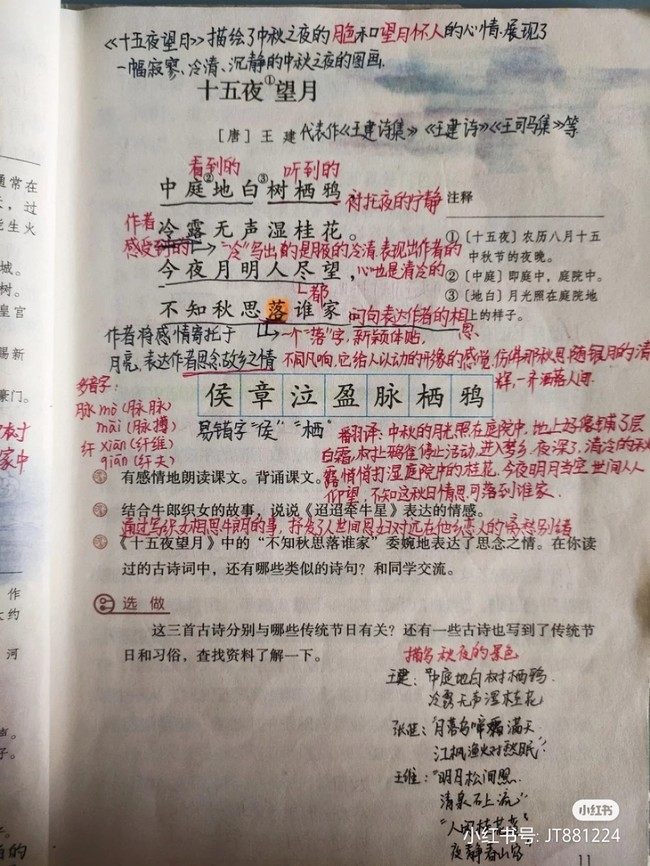 《十五夜望月》描绘了中秋之夜的月色和望月怀人的心情,展现了
一幅寂寥、冷清、沉静的中秋之夜的图画.
十五夜①望月
[唐] 王 建 代表作《王建诗集》《王建诗》《王司马集》等
看到的 听到的
中庭②地白③树栖鸦, 衬托夜的宁静
注释
冷露无声湿桂花。
作者
感受到的 "冷"写出的是月夜的冷清,表现出作者的
心也是清冷的
今夜月明人尽望,
都
不知秋思落谁家
问句表达作者的相
思.
①〔十五夜〕农历八月十五
中秋节的夜晚。
②〔中庭〕即庭中,庭院中。
③〔地白〕月光照在庭院地
上的样子。
作者将感情寄托于
月亮,表达作者思念故乡之情
一个"落"字,新颖体贴,
不同凡响,它给人以动的形象的感觉,仿佛那秋思随银月的清
辉,一齐洒落人间.
侯章泣盈脉栖鸦
多音字:
脉 mò(脉脉)
mài(脉搏)
纤 xiān(纤维)
qiàn(纤夫)
易错字"侯" "栖"
翻译:中秋的月光照在庭院中,地上好像铺了层
白霜,树上鸦雀停止活动,进入梦乡.夜深了,清冷的秋
露悄悄打湿庭院中的桂花.今夜明月当空,世间人人
仰望,不知这秋日情思可落到谁家.
有感情地朗读课文。背诵课文。
结合牛郎织女的故事,说说《迢迢牵牛星》表达的情感。
《十五夜望月》中的“不知秋思落谁家”委婉地表达了思念之情。在你读
过的古诗词中,还有哪些类似的诗句?和同学交流。
选做
这三首古诗分别与哪些传统节日有关?还有一些古诗也写到了传统节
日和习俗,查找资料了解一下。
描写秋夜的景色
王建:"中庭地白树栖鸦
冷露无声湿桂花
张继:"月落乌啼霜满天
江枫渔火对愁眠"
王维:"明月松间照
清泉石上流"
"人闲桂花落
夜静春山空
小红书
小红书号: JT881224
11